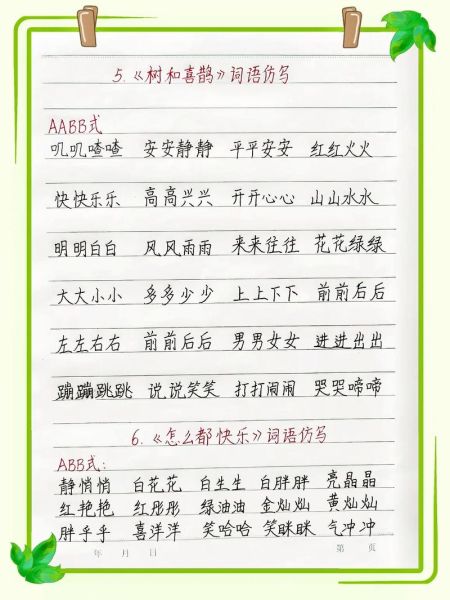 5.《树和喜鹊》词语仿写
AABB式
叽叽喳喳 安安静静 平平安安 红红火火
快快乐乐 高高兴兴 开开心心 山山水水
明明白白 风风雨雨 来来往往 花花绿绿
大大小小 多多少少 上上下下 前前后后
左左右右 前前后后 男男女女 进进出出
蹦蹦跳跳 说说笑笑 打打闹闹 哭哭啼啼
6.《怎么都快乐》词语仿写
ABB式:
静悄悄 白花花 白生生 白胖胖 亮晶晶
红艳艳 红彤彤 绿油油 金灿灿 黄灿灿
胖乎乎 喜洋洋 笑哈哈 笑眯眯 气冲冲
年 月 日 第 页